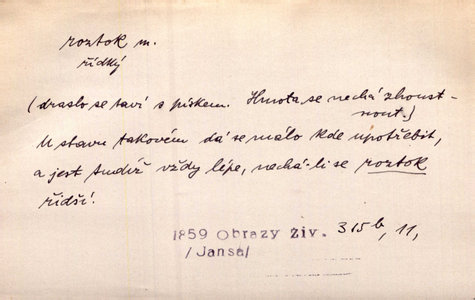 roztok m.
řídký
(draslo se taví s pískem. Hmota se nechá zhoust-
nout.)
U stavu takovém dá se málo kde upotřebiti,
a jest tudíž vždy lépe, nechá-li se roztok
řidší.
1859 Obrazy Živ. 315b, 11,
/Jansa/